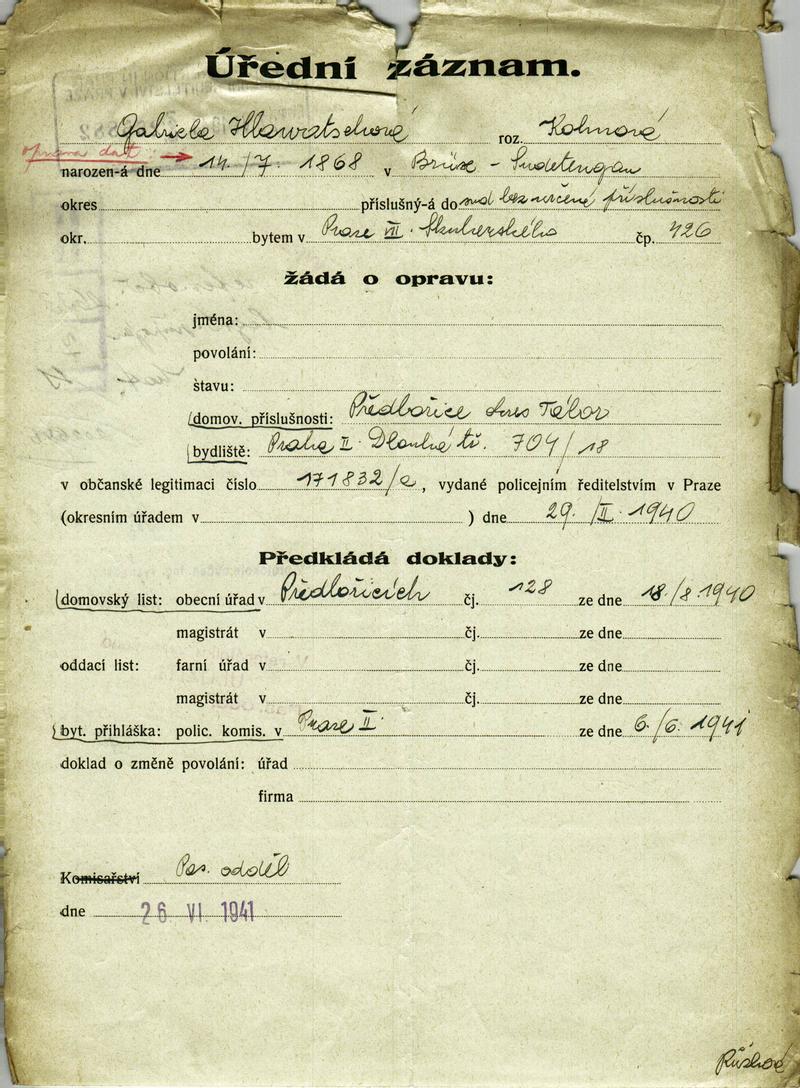 Úřední záznam.
Gabriela Hlawatschová roz. Kohnová
oprava dat
narozen-á dne 14./7. 1868 v Brüx - Sudetengau
okres příslušný-á do bez určené příslušnosti
okr. bytem v Praze VII. Skuherského čp. 426
žádá o opravu:
jména:
povolání:
stavu:
domov. příslušnosti: Předbořice okres Tábor
bydliště: Praha II. Dlouhá tř. 704/18
v občanské legitimaci číslo 171832/a, vydané policejním ředitelstvím v Praze
(okresním úřadem v ) dne 29./II. 1940
Předkládá doklady:
domovský list: obecní úřad v Předbořicích čj. 128 ze dne 18./8. 1940
magistrát v čj. ze dne
oddací list: farní úřad v čj. ze dne
magistrát v čj. ze dne
byt. přihláška: polic. komis. v Praze II. ze dne 6./6. 1941
doklad o změně povolání: úřad
firma
Komisařství Pas. odděl
dne 26 VI 1941